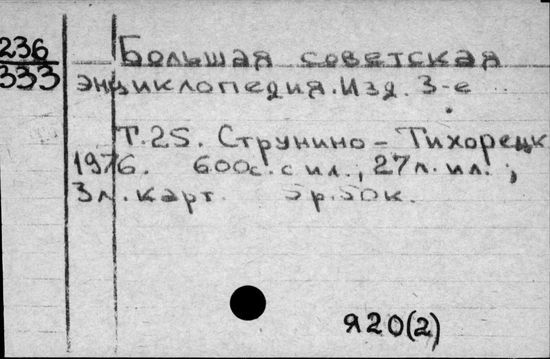 236
333
Большая советская
энциклопедия. Изд. 3-е
Т.25. Струнино – Тихорецк
1976. 600с. с ил., 27л. ил.;
3л. карт. 5р.50к.
Я20(2)